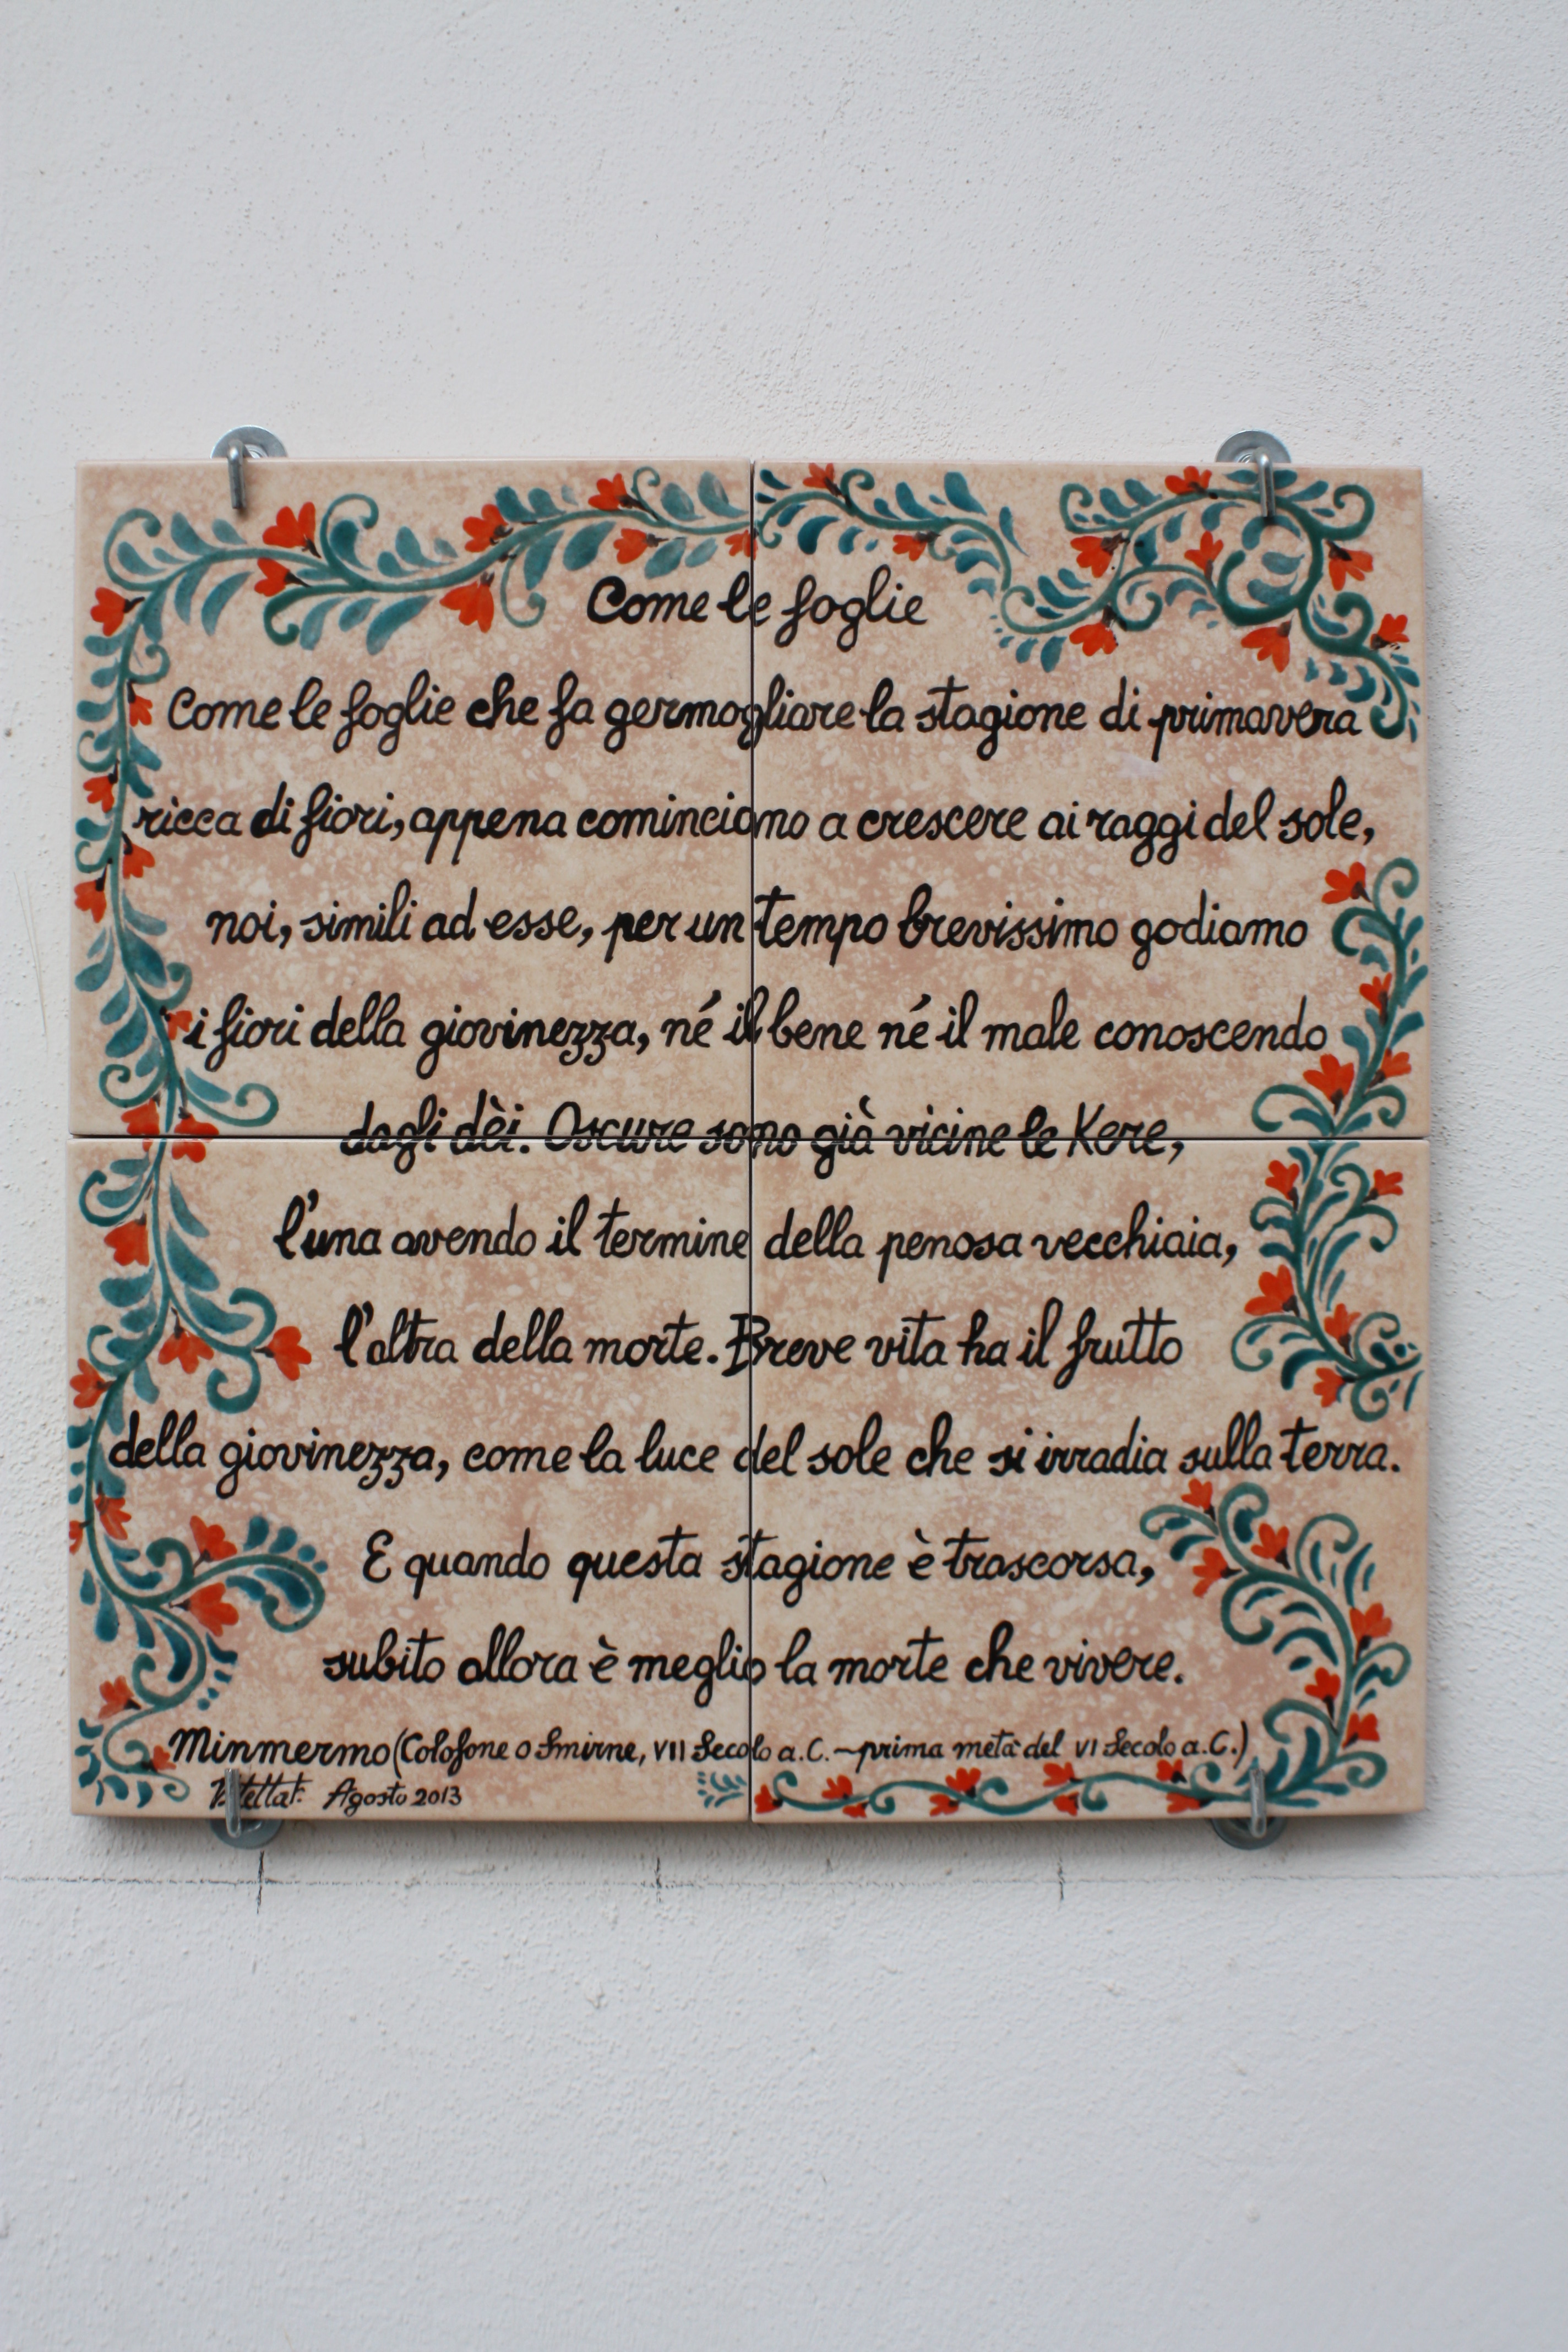 Come le foglie
Come le foglie che fa germogliare la stagione di primavera
ricca di fiori, appena cominciano a crescere ai raggi del sole,
noi, simili ad esse, per un tempo brevissimo godiamo
i fiori della giovinezza, né il bene né il male conoscendo
dagli dèi. Oscure sono già vicine le Kere,
l'una avendo il termine della penosa vecchiaia,
l'altra della morte. Breve vita ha il frutto
della giovinezza, come la luce del sole che si irradia sulla terra.
E quando questa stagione è trascorsa,
subito allora è meglio la morte che vivere.
Minmermo (Colofone o Smirne, VII Secolo a.C. - prima metà del VI Secolo a.C.)
Agosto 2013